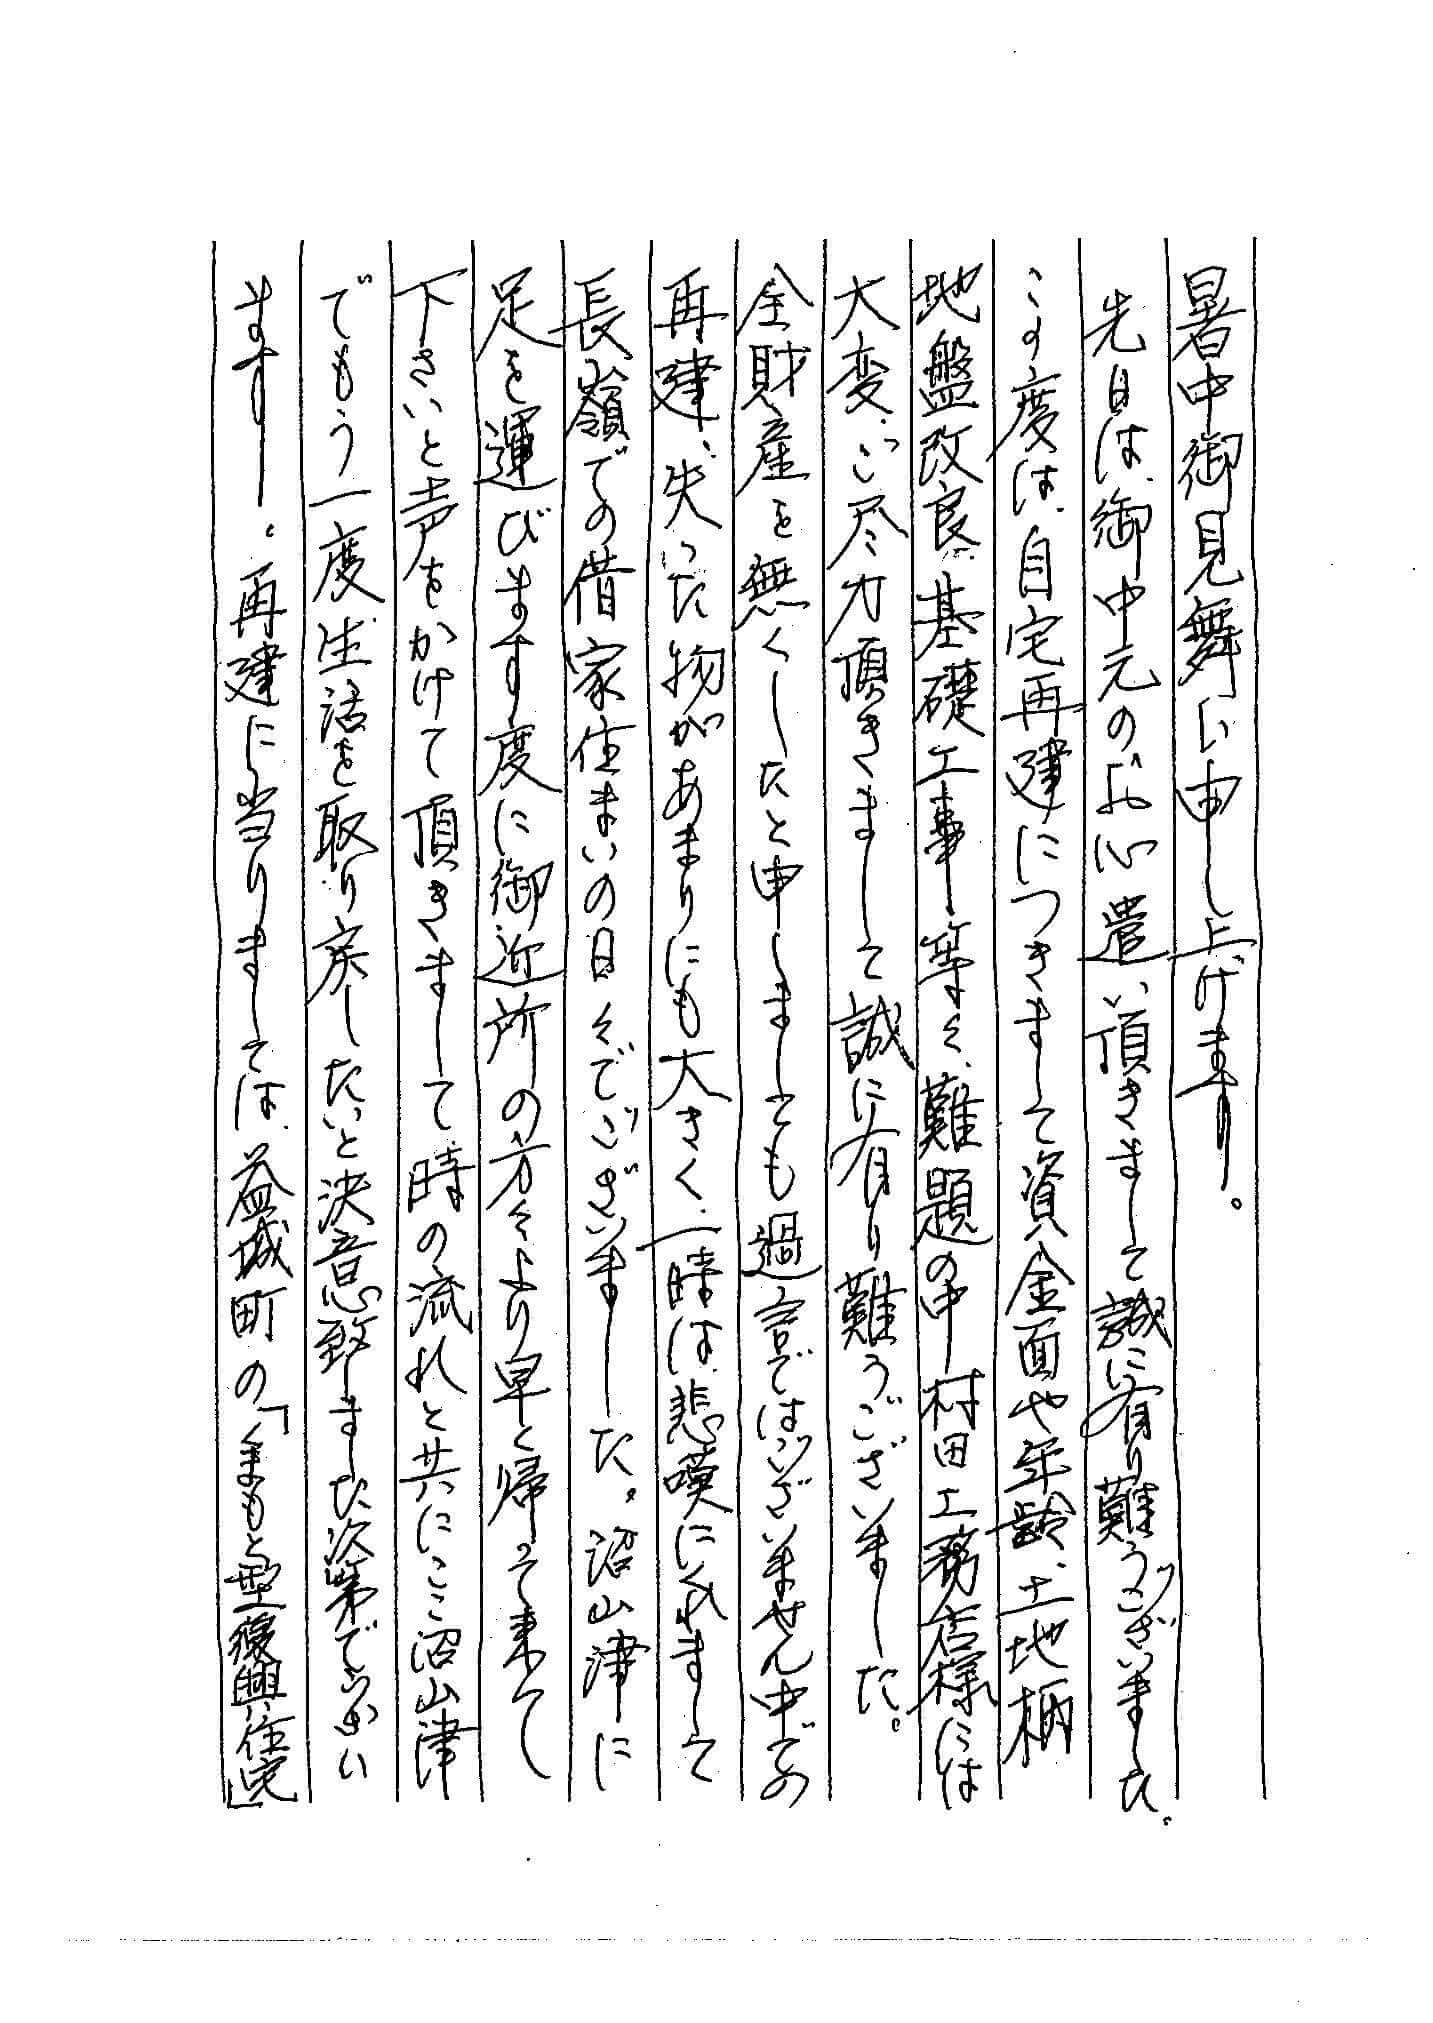 暑中御見舞い申し上げます。
先日は、御中元のお心遣い頂きまして誠に有り難うございました。
この度は、自宅再建につきまして資金面や年齢、土地柄
地盤改良、基礎工事等々、難題の中村田工務店様には
大変、ご尽力頂きまして誠に有り難うございました。
全財産を無くしたと申しましても過言ではございません中での
再建、失った物があまりにも大きく、一時は、悲嘆にくれまして
長嶺での借家住まいの日々でございました。沼山津に
足を運びます度に御近所の方々より早く帰って来て
下さいと声をかけて頂きまして時の流れと共にここ沼山津
でもう一度、生活を取り戻したいと決意致しました次第でござい
ます。再建に当りましては、益城町の「くまもと型復興住宅」